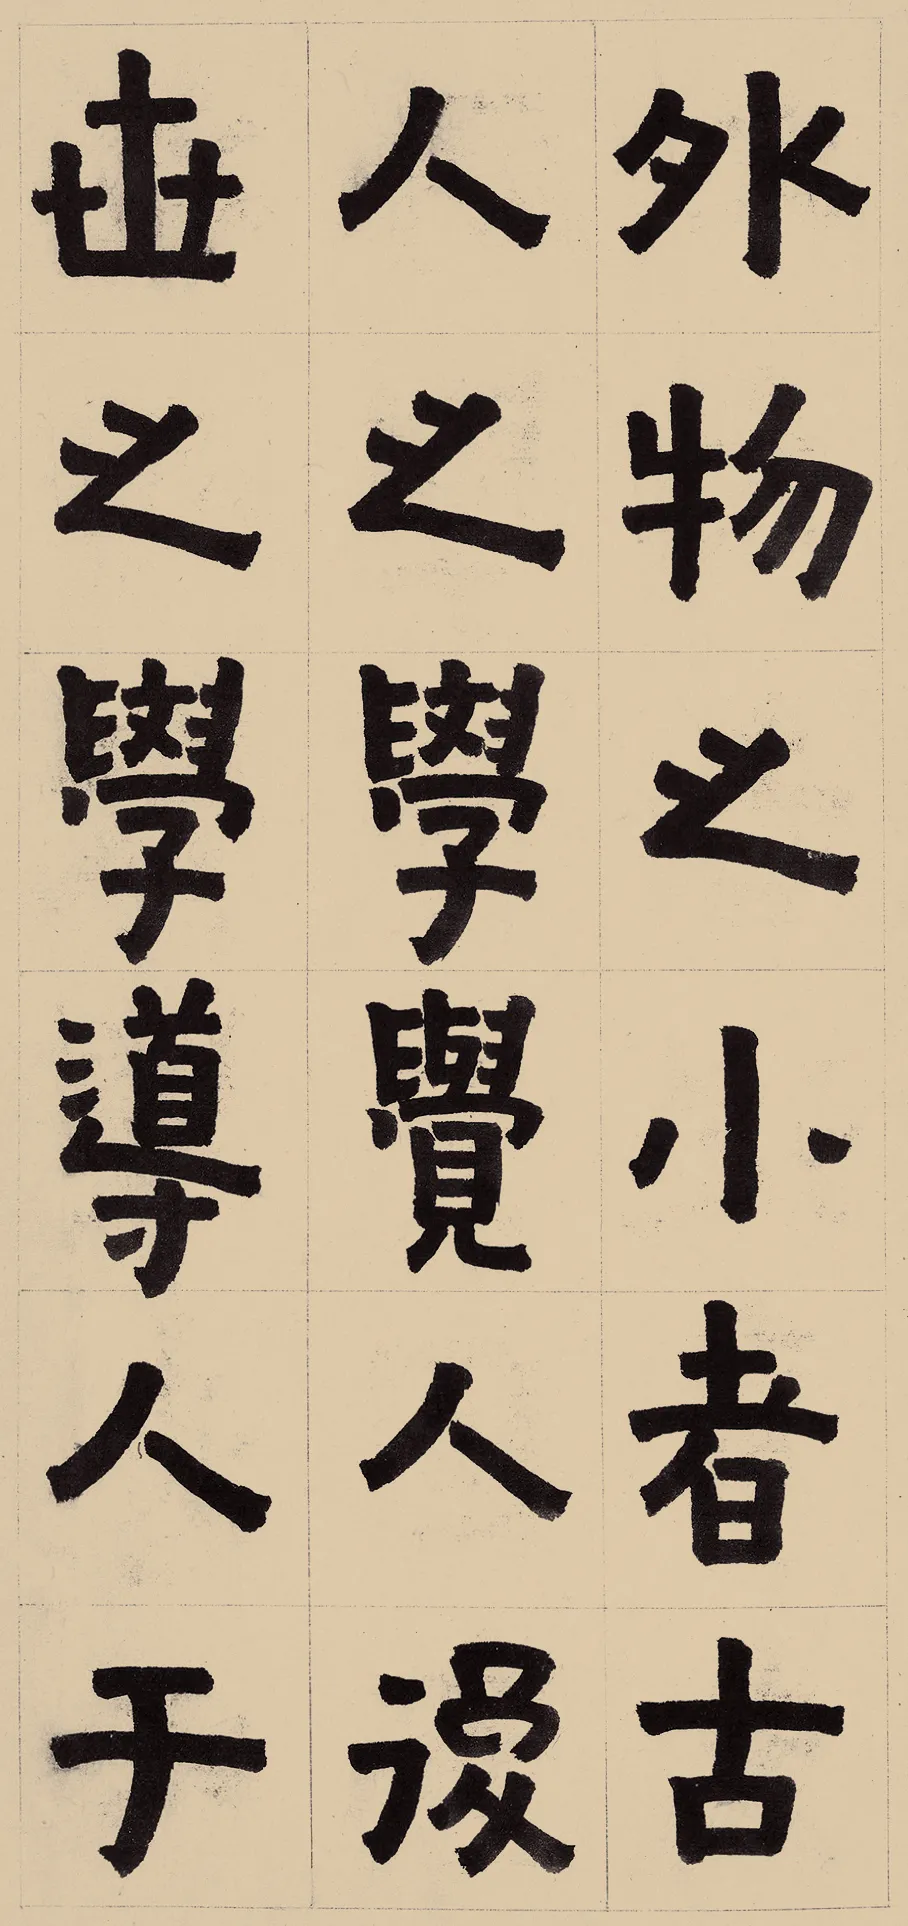 外物之小者古
人之學覺人後
世之學導人于